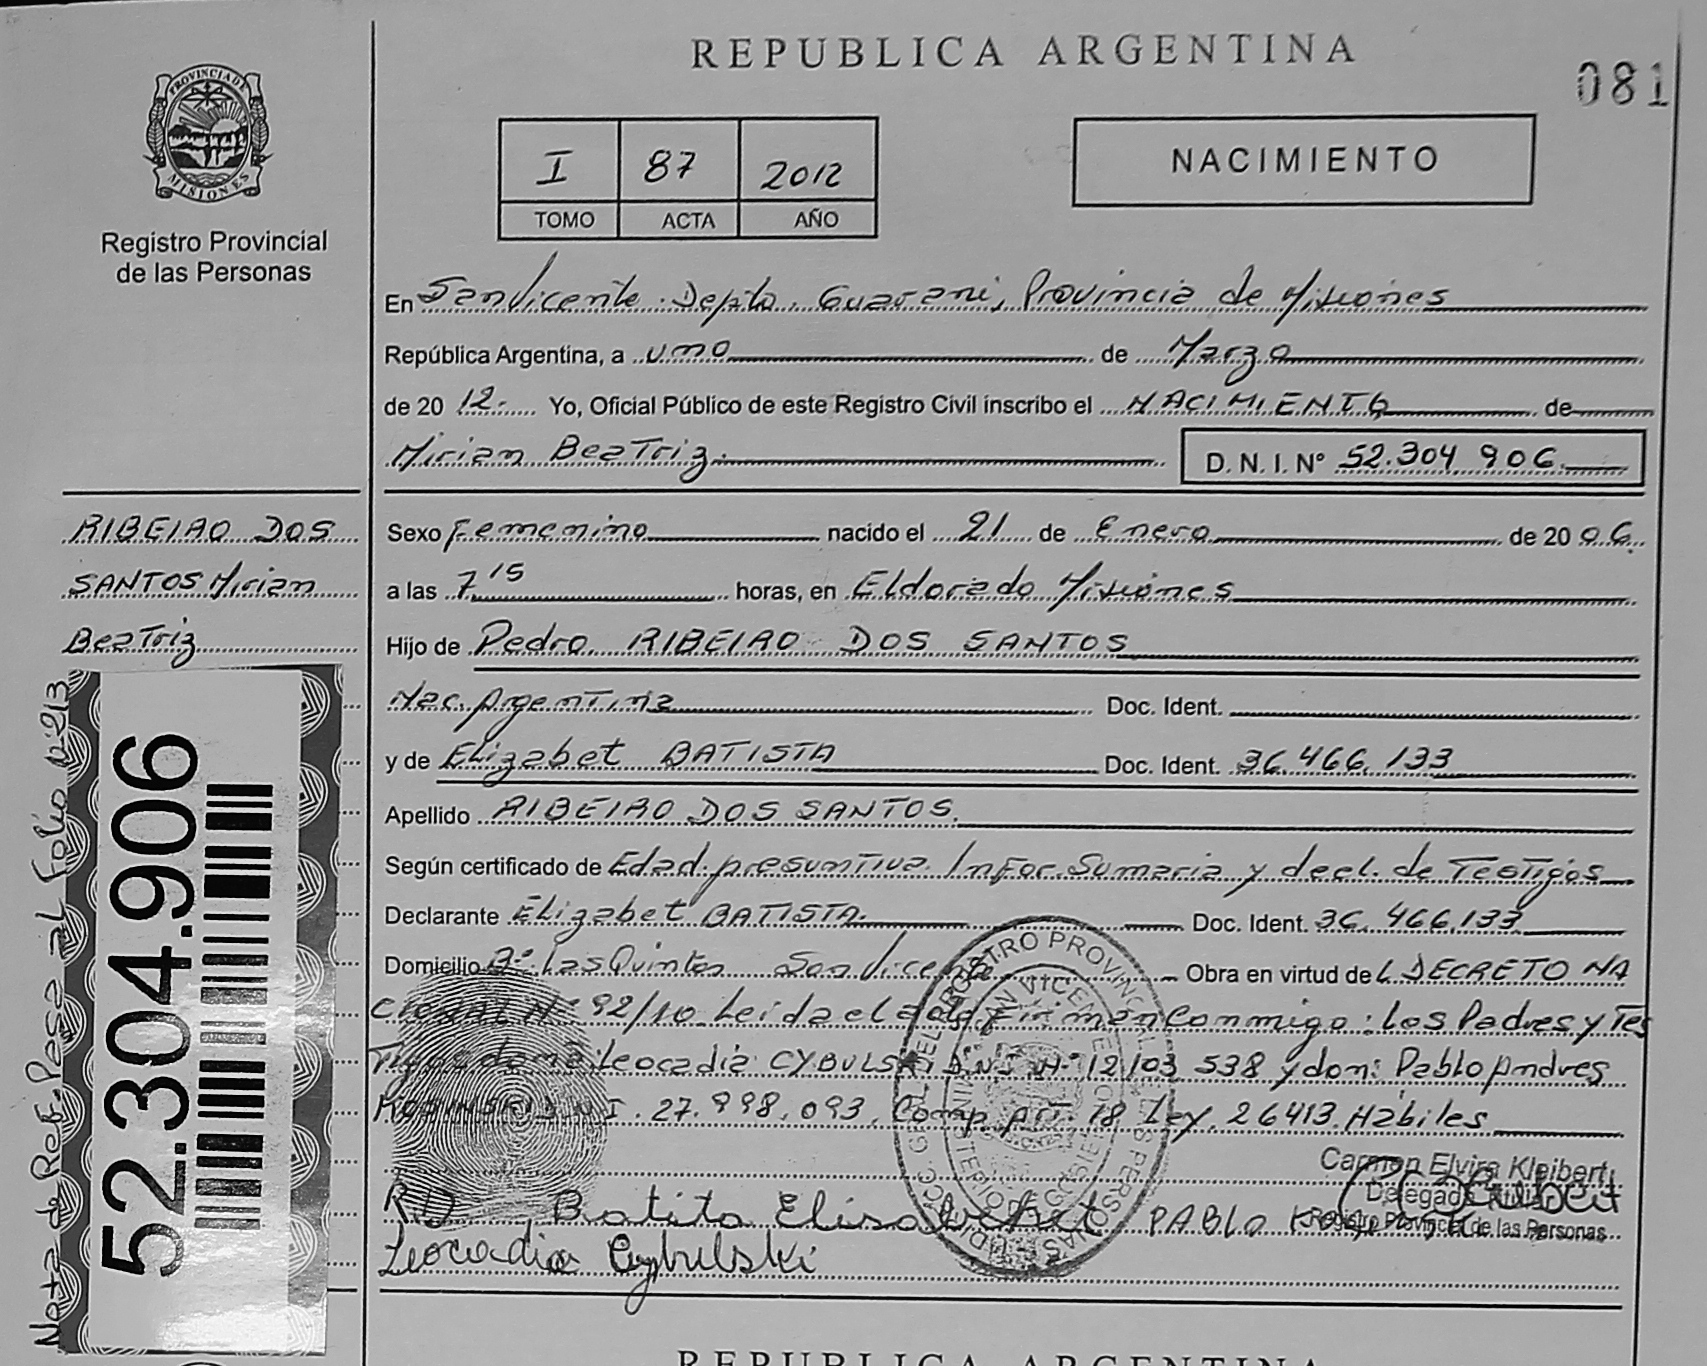 REPUBLICA ARGENTINA
081
PROVINCIA DE
MISIONES
Registro Provincial
de las Personas
I 87 2012
TOMO ACTA AÑO
NACIMIENTO
En San Vicente Depto. Guarani, Provincia de Misiones
República Argentina, a uno de Marzo
de 20 12.- Yo, Oficial Público de este Registro Civil inscribo el NACIMIENTO de
Mirian Beatriz. D. N. I. N° 52.304 906.
RIBEIRO DOS
SANTOS Mirian
Beatriz
Sexo Femenino nacido el 21 de Enero de 20 06.
a las 7 15 horas, en Eldorado Misiones
Hijo de Pedro RIBEIRO DOS SANTOS
Nac. Argentina Doc. Ident.
y de Elizabet BATISTA Doc. Ident. 36.466.133
Apellido RIBEIRO DOS SANTOS.
Según certificado de Edad presuntiva. Infor. Sumaria y decl. de Testigos
Declarante Elizabet BATISTA. Doc. Ident. 36.466.133
Domicilio B° Las Quintas San Vicente Obra en virtud del DECRETO NA
CIONAL N° 92/10 Leida el acta Firman Conmigo: los Padres y Tes
Tigos doña Leocadia CYBULSKI D.N.I N° 12103 538 y don: Pablo Andres
D.N.I. 27.998.093. Comp. Art. 18 Ley. 26413. Habiles
Carmen Elvira Kleibert
Delegada Titular
Registro Provincial de las Personas
R D Batita Elisabehet PABLO
Leocadia Cybulski
52.304.906
Nota de Ref. Pasa al Folio N-213
REPUBLICA ARGENTINA